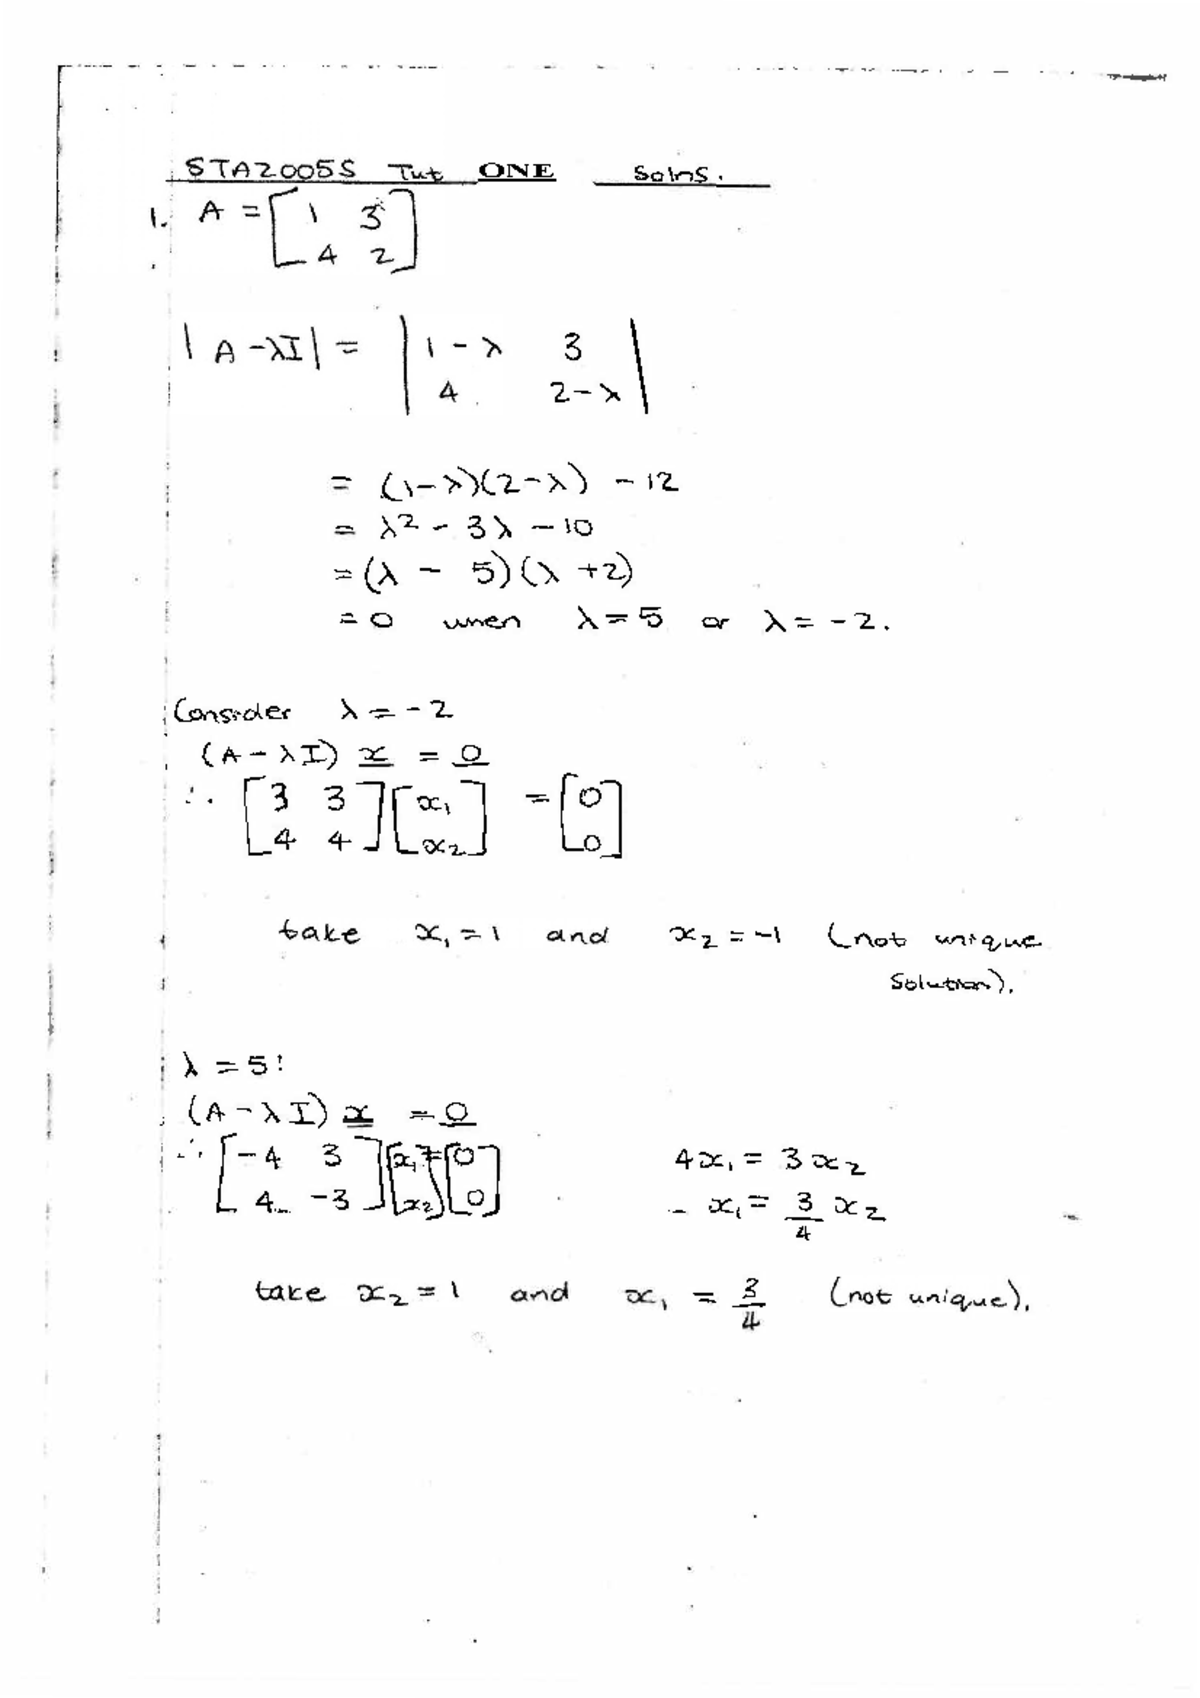 STA2005S Tut ONE Solns.
1. A = [ 1 3
4 2 ]
|A - λI| = | 1 - λ 3
4 2 - λ |
= (1-λ)(2-λ) - 12
= λ² - 3λ - 10
= (λ - 5)(λ + 2)
= 0 when λ = 5 or λ = -2.
Consider λ = -2
(A - λI) x = 0
∴ [ 3 3 ] [ x₁ ] = [ 0 ]
[ 4 4 ] [ x₂ ] [ 0 ]
take x₁ = 1 and x₂ = -1 (not unique
solution).
λ = 5:
(A - λI) x = 0
∴ [ -4 3 ] [ x₁ ] = [ 0 ] 4x₁ = 3x₂
[ 4 -3 ] [ x₂ ] [ 0 ] x₁ = 3/4 x₂
take x₂ = 1 and x₁ = 3/4 (not unique).